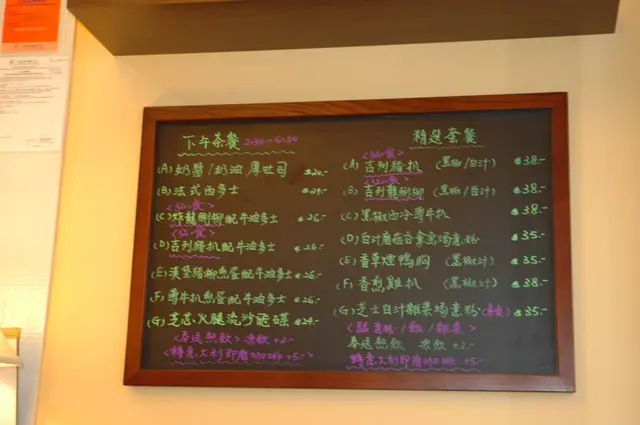 下午茶餐 2:30-6:30
(A) 奶醬/奶油 厚吐司 $20.-
(B) 法式西多士 $24.-
(C) 炸龍脷柳配牛油多士 $26.-
(D) 吉列豬扒配牛油多士 $26.-
(E) 漢堡豬柳魚蛋配牛油多士 $26.-
(F) 薄牛扒魚蛋配牛油多士 $26.-
(G) 芝芯火腿流沙 $24.-
(奉送熱飲) 凍飲+2.-
<轉意大利即磨咖啡 +5.->
精選套餐
(A) 吉列豬扒 (黑椒/白汁) $38.-
(B) 吉列龍脷柳 (黑椒/白汁) $38.-
(C) 黑椒西冷薄牛扒 $38.-
(D) 白汁蘑菇 $35.-
(E) 香草煙鴨胸 (黑椒汁) $35.-
(F) 香煎雞扒 (黑椒汁) $38.-
(G) 芝士白汁雜菜焗意粉 (素食) $35.-
(跟意粉/飯/雜菜)
奉送熱飲 凍飲+2.-
轉意大利即磨咖啡 +5.-